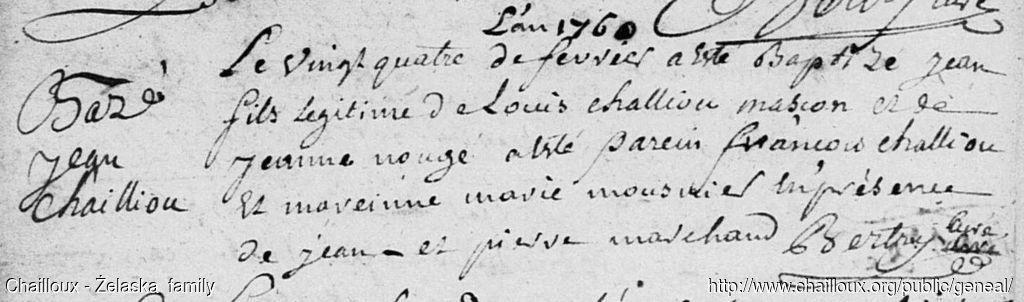 L'an 1760
Bazé
jean
Chailliou
Le vingt quatre de fevrier a esté Baptizé jean
fils legitime de Louis challiou masson et de
jeanne nougé a esté parein françois challiou
et mareinne marie mousnier en présence
de jean et pierre marchand Bertry curé
Chailloux - Żelaska family
http://www.chailloux.org/public/geneal/